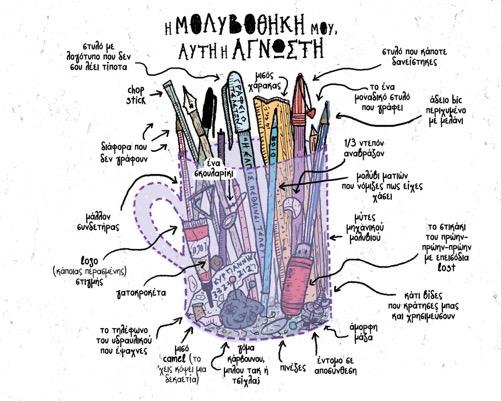 Η ΜΟΛΥΒΟΘΗΚΗ ΜΟΥ,
ΑΥΤΗ Η ΑΓΝΩΣΤΗ
στυλό με
λογότυπο που δεν
σου λέει τίποτα
μισός
χάρακας
στυλό που κάποτε
δανείστηκες
chop
stick
το ένα
μοναδικό στυλό
που γράφει
άδειο bic
περιχυμένο
με μελάνι
διάφορα που
δεν γράφουν
ένα
σκουλαρίκι
1/3 ντεπόν
αναβράζον
μολύβι ματιών
που νόμιζες πως είχες
χάσει
μάλλον
συνδετήρας
μύτες
μηχανικού
μολυβιού
το στικάκι
του πρώην-
πρώην-πρώην
με επεισόδια
lost
logo
(κάποιας περασμένης)
στιγμής
γατοκροκέτα
κάτι βίδες
που κράτησες μπας
και χρησιμεύσουν
το τηλέφωνο
του υδραυλικού
που έψαχνες
μισό
camel (το
'χεις κόψει μια
δεκαετία)
γόμα
κάρβουνου,
μπλου τακ ή
τσίχλα;
πινέζες
έντομο σε
αποσύνθεση
άμορφη
μάζα